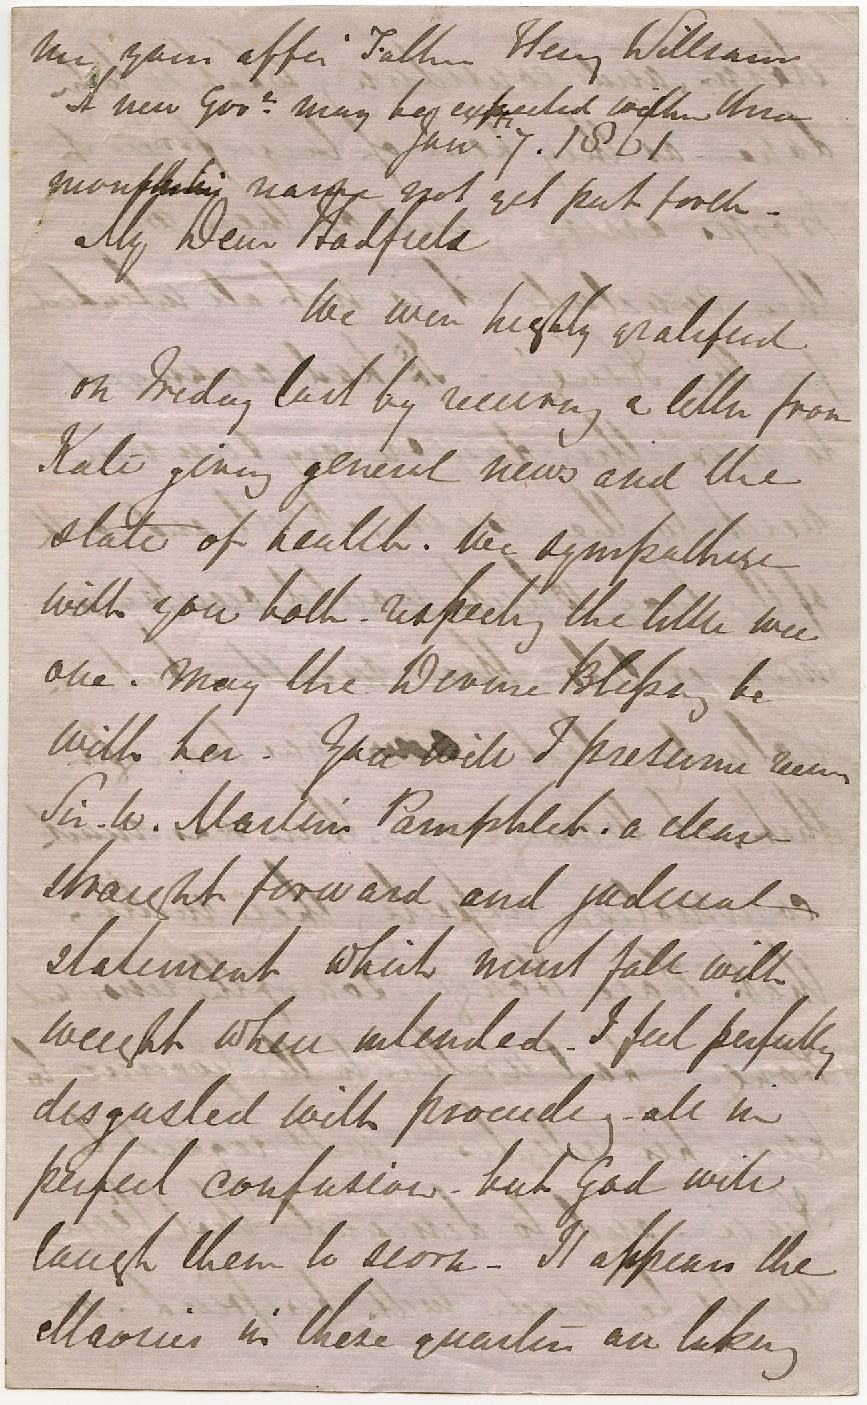 me, your affec Father Henry Williams
A new Govr may be expected within three
Jany 7. 1861
months name not yet put forth -
My Dear Hadfield
We were highly gratified
on Friday last by receiving a letter from
Kate giving general news and the
state of health. We sympathise
with you both - respecting the little wee
one. May the Divine Blessing be
with her - You will I presume receive
Sir. W. Martins Pamphlet. a clear
straight forward and judicial
statement which must fall with
weight when intended - I feel perfectly
disgusted with proceedings - all in
perfect confusion - but God will
laugh them to scorn - It appears the
Maories in these quarters are taking